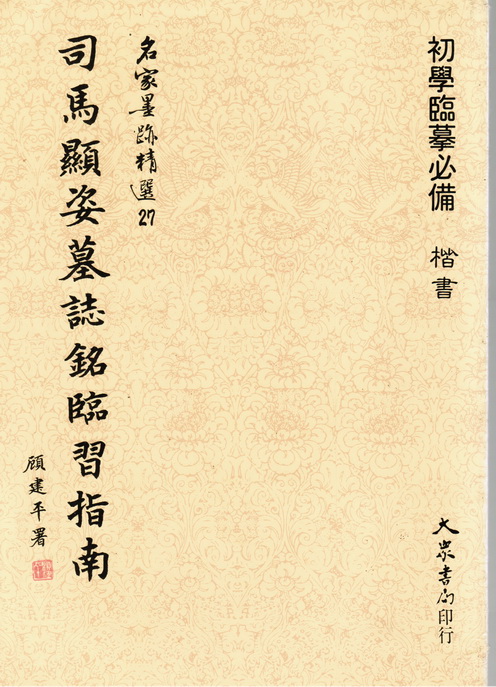 初學臨摹必備 楷書
大眾書局印行
名家墨跡精選27
司馬顯姿墓誌銘臨習指南
顧建平署